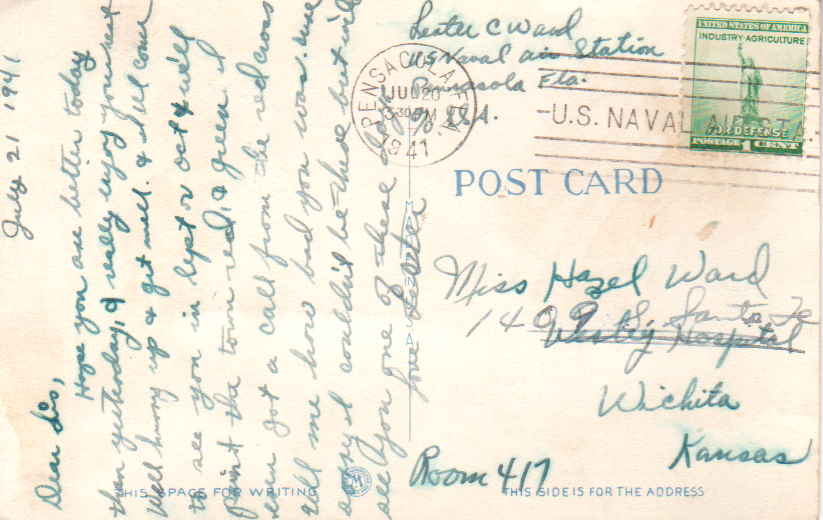 July 21 1941
Dear Sis,
Hope you are better today
than yesterday, & really enjoy yourself
Well hurry up & get well. & I'll come
to see you in Sept or Oct & we'll
paint the town red, & green. I
even got a call from the red cross
told me how bad you was. and
sorry I couldn't be there but will
see you one of these days
love Lester
Lester C Ward
U.S. Naval air Station
Pensacola Fla.
U.S.A.
PENSACOLA, FLA.
JUL 20
3 30 PM
1941
U.S. NAVAL AIR STA.
UNITED STATES OF AMERICA
INDUSTRY AGRICULTURE
FOR DEFENSE
POSTAGE 1 CENT
POST CARD
Miss Hazel Ward
1409 S. Santa Fe
Wesley Hospital
Wichita
Kansas
Room 417
THIS SPACE FOR WRITING
M
THIS SIDE IS FOR THE ADDRESS